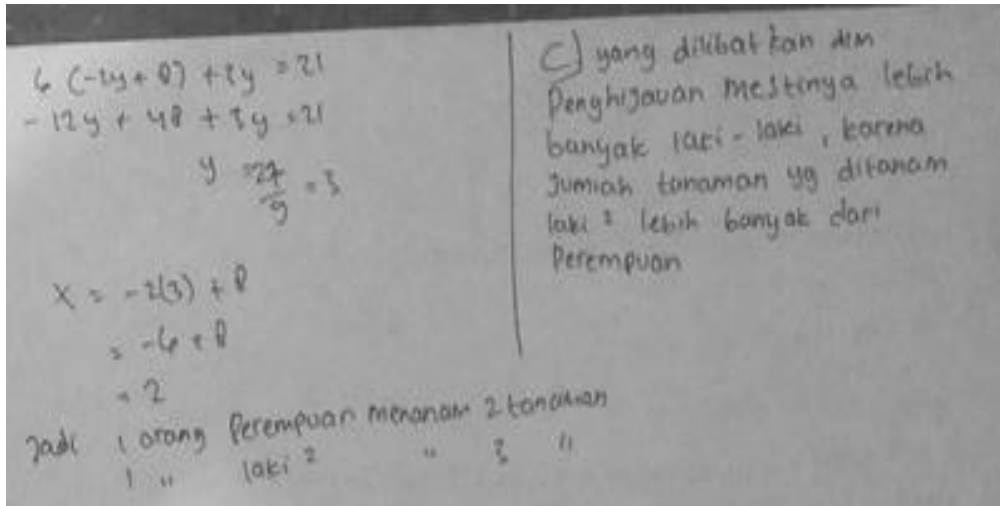 6 (-2y + 8) + 3y = 21
-12y + 48 + 3y = 21
y = 27/9 = 3
x = -2(3) + 8
= -6 + 8
= 2
Jadi 1 orang Perempuan menanam 2 tanaman
1 " laki² " 3 "
C) yang dilibatkan dlm
Penghijauan mestinya lebih
banyak laki-laki, karena
Jumlah tanaman yg ditanam
laki² lebih banyak dari
Perempuan